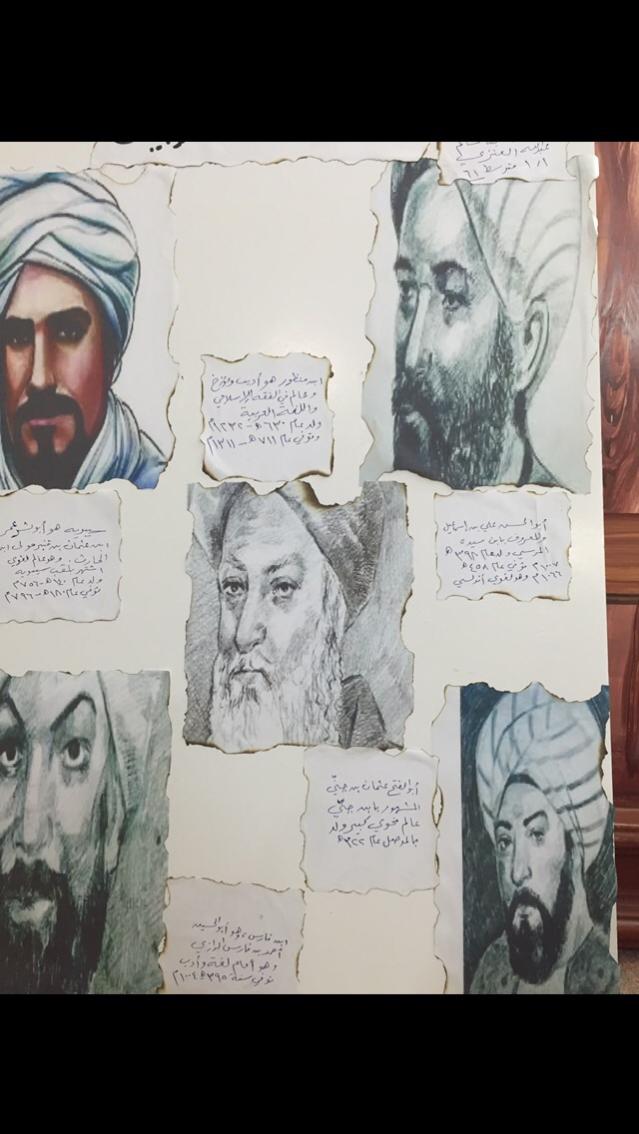 عبدالله العنزي
١/١ متوسط ٦١
ابن منظور هو أديب ومؤرخ
وعالم في الفقه الإسلامي
واللغة العربية
ولد عام ٦٣٠هـ - ١٢٣٢م
وتوفي عام ٧١١هـ - ١٣١١م
أبو الحسن علي بن إسماعيل
والمعروف بابن سيده
المرسي ولد عام ٣٩٨هـ
١٠٠٧م توفي عام ٤٥٨هـ
١٠٦٦م وهو لغوي أندلسي
سيبويه هو أبو بشر عمر
ابن عثمان بن قنبر مولى ابن
الحارث، وهو عالم لغوي
اشتهر بلقب سيبويه
ولد عام ١٤٠هـ - ٧٥٦م
توفي عام ١٨٠هـ - ٧٩٦م
أبو الفتح عثمان بن جنّي
المشهور بابن جنّي
عالم نحوي كبير ولد
بالموصل عام ٣٢٢هـ
ابن فارس، وهو أبو الحسين
أحمد بن فارس الرازي
وهو إمام لغة وأدب
توفي سنة ٣٩٥هـ - ١٠٠٤م